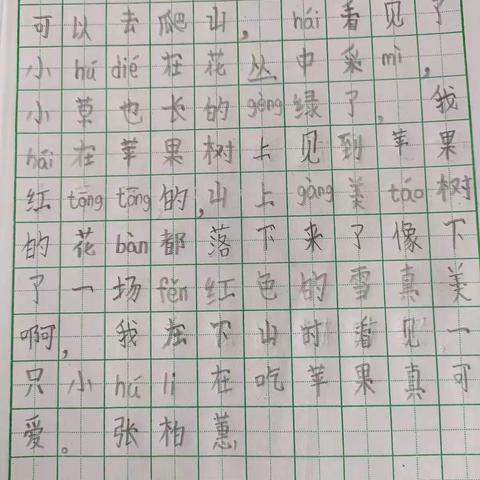 可以去爬山，hái看见了
小hú dié在花丛中采mì，
小草也长的gèng绿了，我
hái在苹果树上见到苹果
红tōng tōng的，山上gàng美táo树
的花bàn都落下来了像下
了一场fěn红色的雪真美
啊，我在下山时看见一
只小hú li在吃苹果真可
爱。张柏蕙